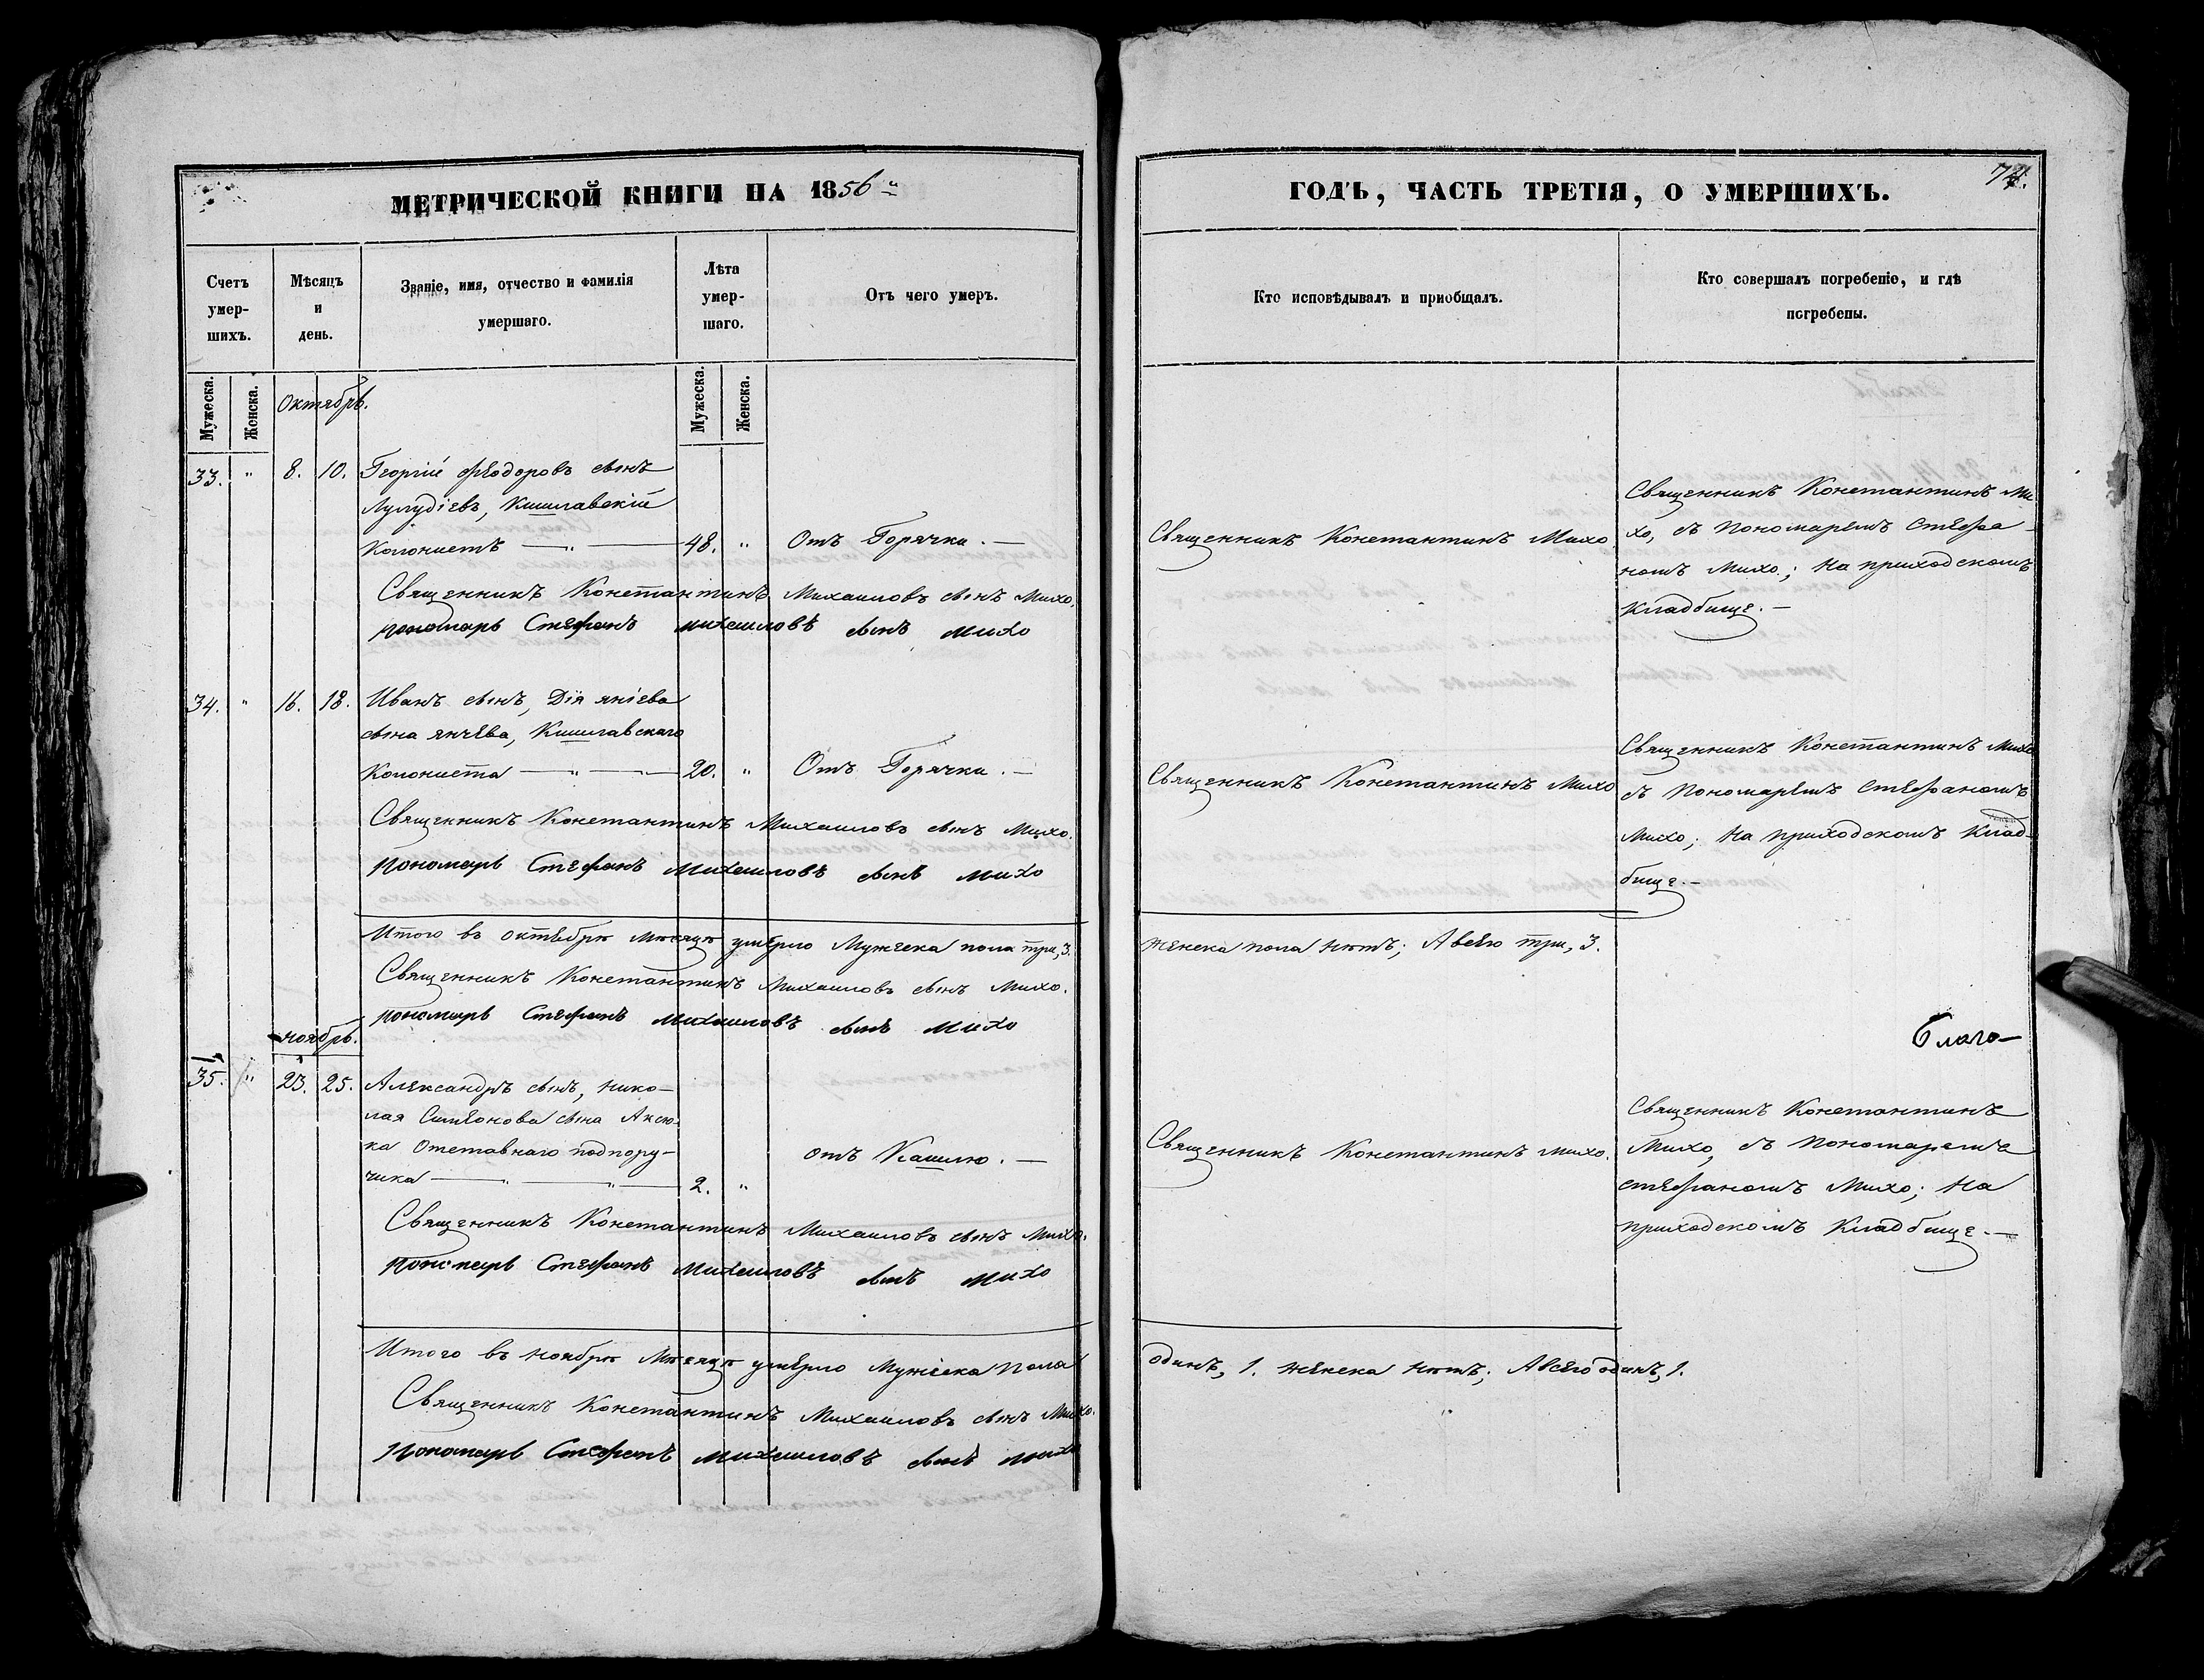 МЕТРИЧЕСКОЙ КНИГИ НА 1856
Счетъ умер-шихъ.
Мѣсяцъ и день.
Званіе, имя, отчество и фамилія умершаго.
Лѣта умер-шаго.
Отъ чего умеръ.
Мужеска.
Женска.
Мужеска.
Женска.
Октябрь.
33. " 8. 10. Георгій Феодоровъ сынъ
Лулудіевъ, Кишлавскій
Колонистъ — " — 48. " Отъ Горячки. —
Священникъ Константинъ Михаиловъ сынъ Михо.
пономарь Стефанъ михаиловъ сынъ михо
34. " 16. 18. Иванъ сынъ, Дія яніева
сына янчева, Кишлавскаго
Колониста — " — 20. " Отъ Горячки. —
Священникъ Константинъ Михаиловъ сынъ Михо.
Пономарь Стефанъ Михаиловъ сынъ михо
Итого въ октебрѣ мѣсяцѣ умерло Мужеска пола три, 3.
Священникъ Константинъ Михаиловъ сынъ Михо.
пономарь Стефанъ михаиловъ сынъ михо
ноябрь.
35. " 23. 25. Александръ сынъ, Нико—
лая Симеонова сына Аксю-
ка Отставнаго подпору—
чика — " — " — 2. " отъ Кашлю. —
Священникъ Константинъ Михаиловъ сынъ Михо.
пономарь Стефанъ михаиловъ сынъ михо
Итого въ ноябрѣ Мѣсяцѣ умерло Мужеска Пола
Священникъ Константинъ Михаиловъ сынъ Михо.
Пономарь Стефанъ михаиловъ сынъ михо
74.
ГОДЪ, ЧАСТЬ ТРЕТІЯ, О УМЕРШИХЪ.
Кто исповѣдывалъ и приобщалъ.
Кто совершалъ погребеніе, и гдѣ
погребены.
Священникъ Константинъ Михо.
Священникъ Константинъ Ми
хо, съ пономаремъ Стефа-
номъ Михо; на приходскомъ
кладбище. —
Священникъ Константинъ Михо
Священникъ Константинъ Михо
съ Пономаремъ Стефаномъ
Михо; на приходскомъ Клад-
бище. —
женска пола нѣтъ; Авсего три, 3.
Благо—
Священникъ Константинъ Михо.
Священникъ Константинъ
Михо, съ Пономаремъ
стефаномъ Михо; На
приходскомъ Кладбище. —
одинъ, 1. женска нѣтъ; Авсего одинъ, 1.